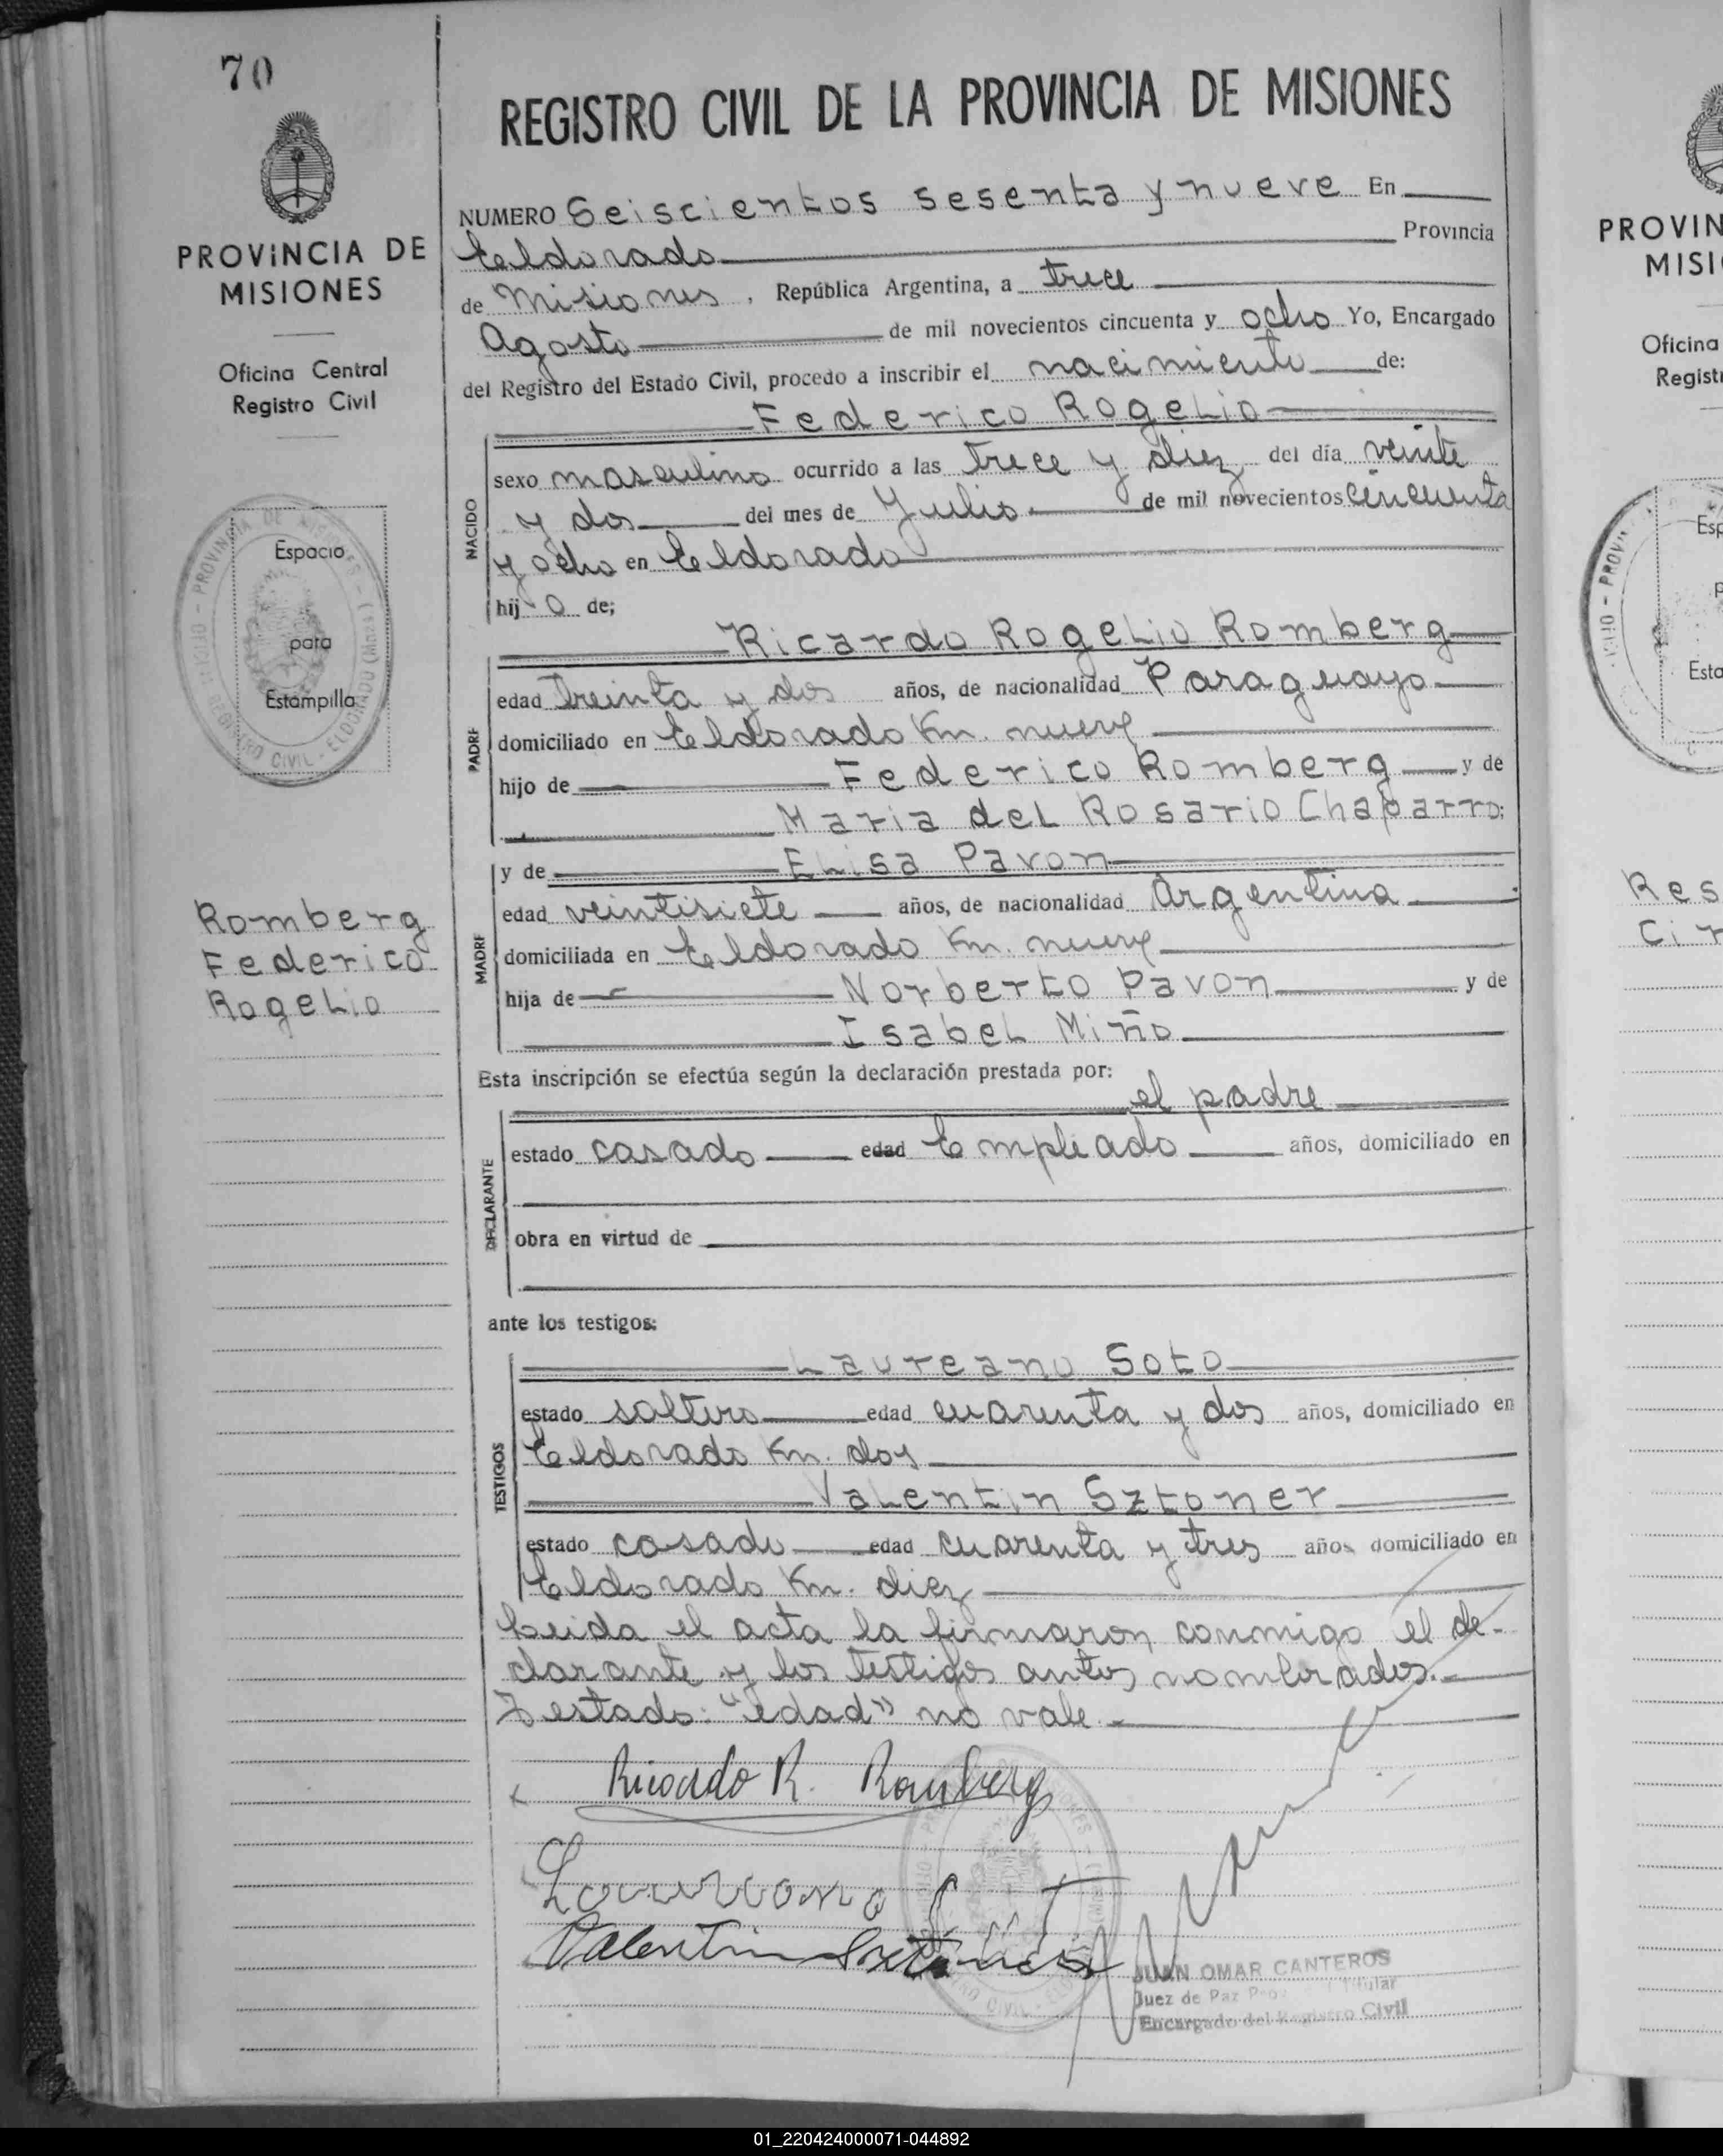 70
PROVINCIA DE
MISIONES
Oficina Central
Registro Civil
Espacio
para
Estampilla
Romberg
Federico
Rogelio
REGISTRO CIVIL DE LA PROVINCIA DE MISIONES
NUMERO Seiscientos sesenta y nueve En
Eldorado Provincia
de Misiones, República Argentina, a trece
Agosto de mil novecientos cincuenta y ocho Yo, Encargado
del Registro del Estado Civil, procedo a inscribir el nacimiento de:
Federico Rogelio
NACIDO
sexo masculino ocurrido a las trece y diez del día veinte
y dos del mes de Julio de mil novecientos cincuenta
y ocho en Eldorado
hijo de;
Ricardo Rogelio Romberg
PADRE
edad treinta y dos años, de nacionalidad Paraguayo
domiciliado en Eldorado Km. nueve
hijo de Federico Romberg y de
Maria del Rosario Chaparro;
y de Elisa Pavon
MADRE
edad veintisiete años, de nacionalidad Argentina
domiciliada en Eldorado Km. nueve
hija de Norberto Pavon y de
Isabel Miño
Esta inscripción se efectúa según la declaración prestada por:
el padre
DECLARANTE
estado casado edad Empleado años, domiciliado en
obra en virtud de
ante los testigos:
Laureano Soto
TESTIGOS
estado soltero edad cuarenta y dos años, domiciliado en
Eldorado Km. dos
Valentin Sztoner
estado casado edad cuarenta y tres años domiciliado en
Eldorado Km. diez
Leida el acta la firmaron conmigo el de-
clarante y los testigos antes nombrados.-
Testado: "edad" no vale.-
Ricardo R. Romberg
Laureano Soto
Valentin
JUAN OMAR CANTEROS
Juez de Paz Titular
Encargado del Registro Civil
PROVIN
MISI
Oficina
Regist
Esp
Esta
Res
Ci
01_220424000071-044892